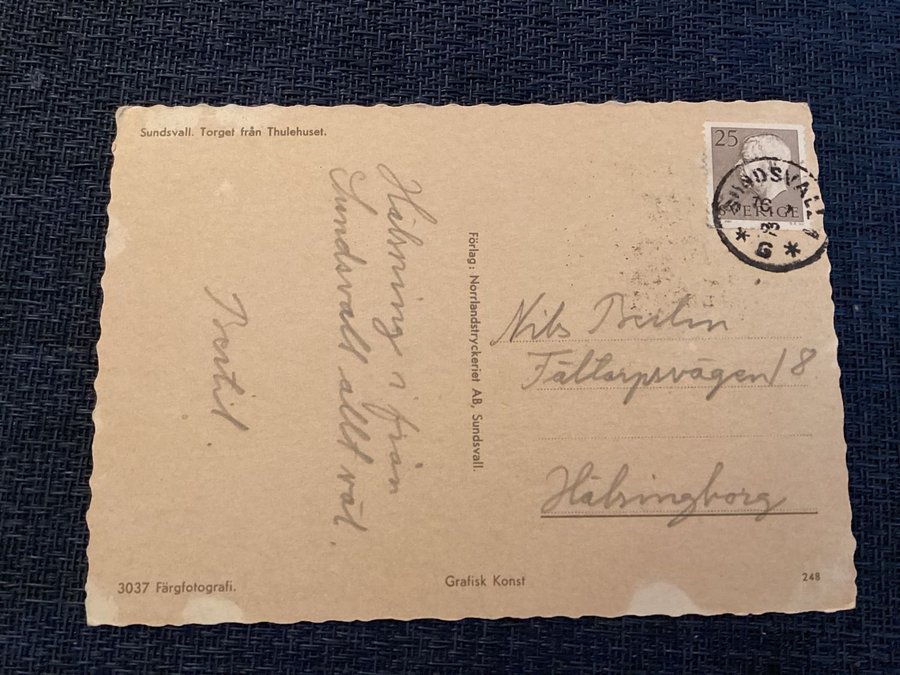 Sundsvall. Torget från Thulehuset.
25
SVERIGE
SUNDSVALL
G
Hälsning ifrån
Sundsvall allt väl.
Bertil.
Förlag: Norrlandstryckeriet AB, Sundsvall.
Nils
Fältarpsvägen 18
Hälsingborg
3037 Färgfotografi.
Grafisk Konst
248